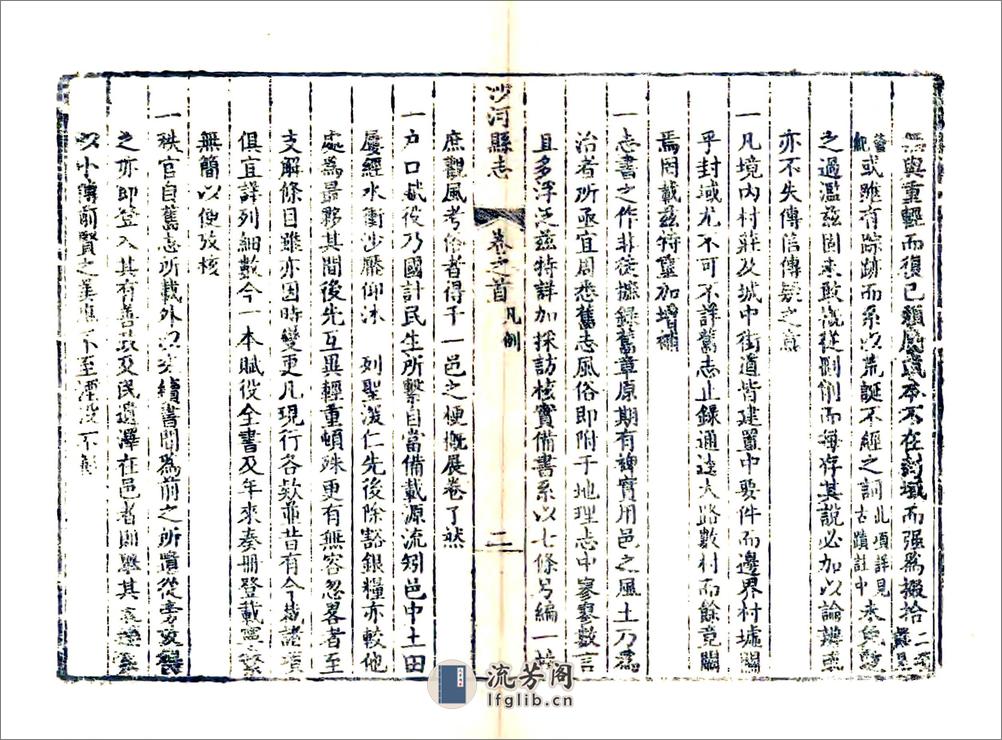 無與重輕而復已頹廢或本不在封域而强爲掇拾
或雖有踪跡而系以荒誕不經之詞此項詳見古蹟註中未免
之過濫茲固未敢槪從刪削而每存其說必加以論辨
亦不失傳信傳疑之意
一凡境內村莊及城中街道皆建置中要件而邊界村墟關
乎封域尤不可不詳舊志止錄通逵大路數村而餘竟闕
焉罔載茲特釐加增補
一志書之作非徒摭錄舊章原期有裨實用邑之風土乃爲
治者所亟宜周悉舊志風俗即附于地理志中寥寥數言
且多浮泛茲特詳加採訪核實備書系以七條另編一
沙河縣志 卷之首 凡例 二
庶觀風考俗者得于一邑之梗槪展卷了然
一戶口賦役乃國計民生所繫自當備載源流矧邑中土田
屢經水衝沙壓仰沐 列聖湛仁先後除豁銀糧亦較他
處爲最夥其間後先互異輕重頓殊更有無容忽畧者至
支解條目雖亦因時變更凡現行各欵並昔有今裁諸項
俱宜詳列細數今一本賦役全書及年來奏册登載
無簡以便攷核
一秩官自舊志所載外以次續書間爲前之所遺從旁
之亦即登入其有善政及民遺澤在邑者則
以小傳前賢之美應不至湮沒不
流芳阁
lfglib.cn